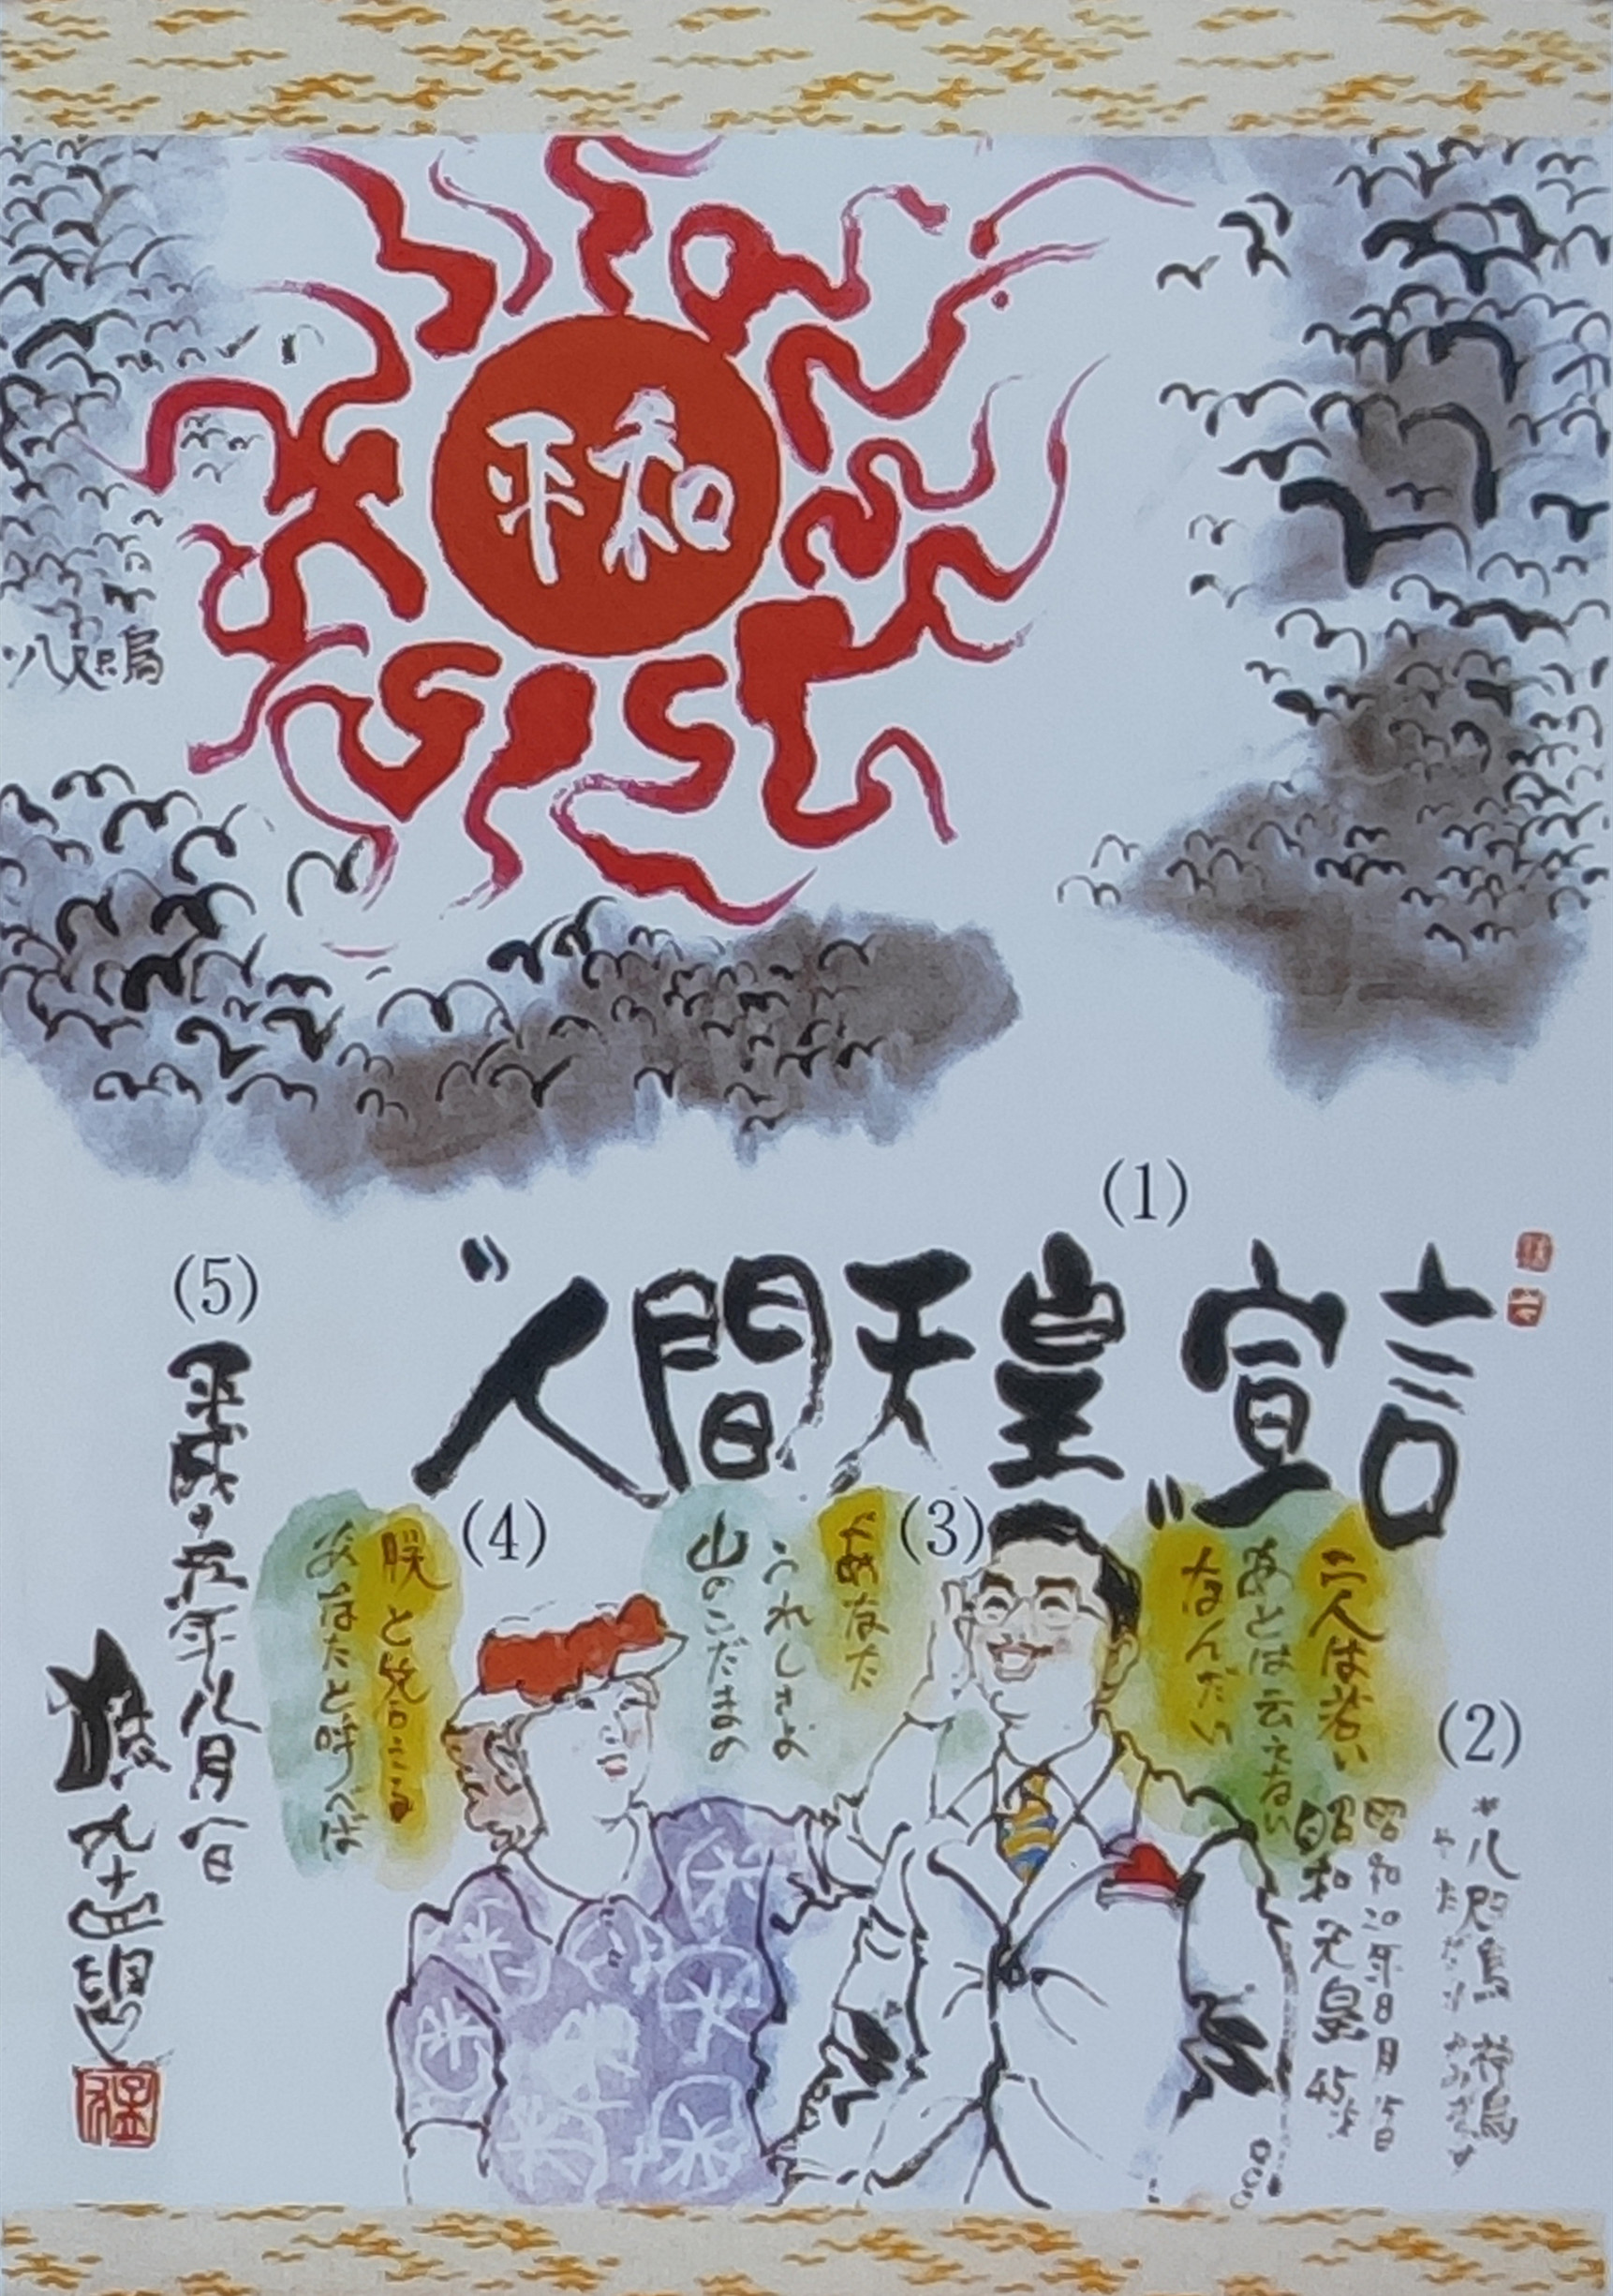 平和
八咫烏
(1)
"人間天皇"宣言
(5)
平成・五年八月
(4)
あなたと呼べば
朕と答える
山のこだまの
うれしさよ
(3)
あなた
なんだい
あとは云えない
二人は若い
昭和天皇45才
昭和20年8月15日
(2)
※八咫烏 神烏
やたがらす